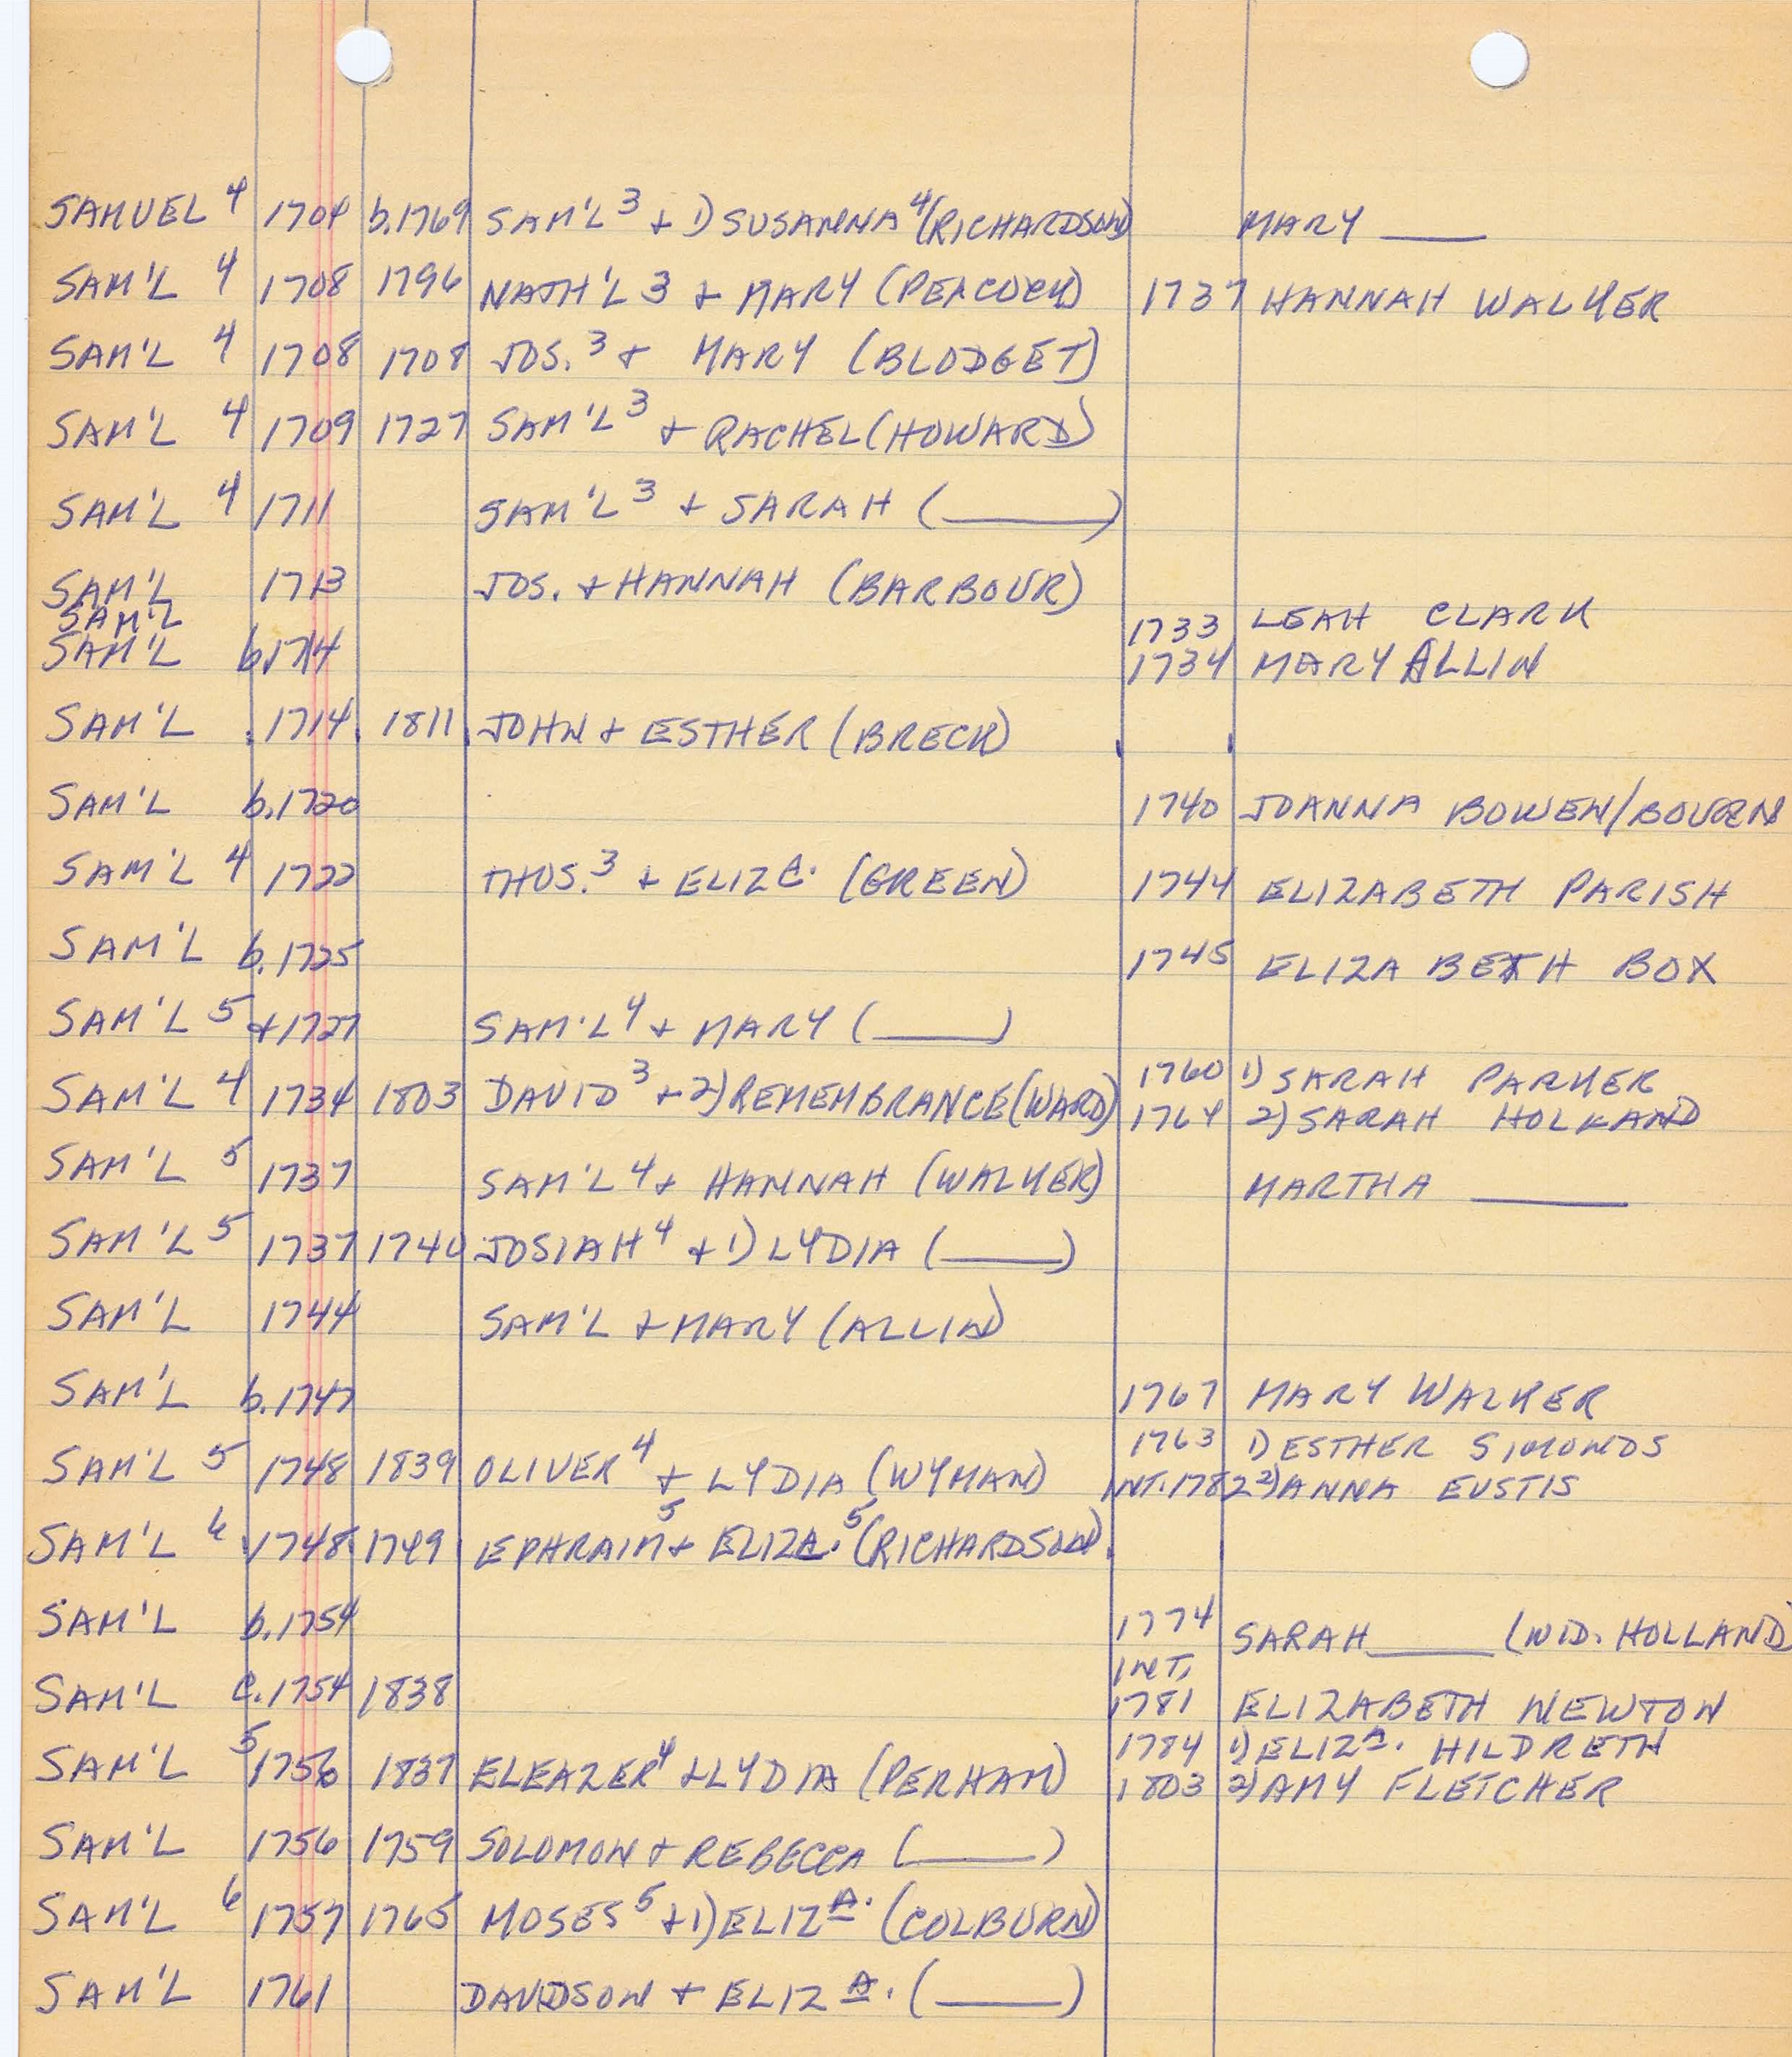 SAMUEL 4 1704 b.1769 SAM'L 3 + 1) SUSANNA 4 (RICHARDSON) MARY ____
SAM'L 4 1708 1796 NATH'L 3 + MARY (PEACOCK) 1737 HANNAH WALKER
SAM'L 4 1708 1708 JOS. 3 + MARY (BLODGET)
SAM'L 4 1709 1727 SAM'L 3 + RACHEL (HOWARD)
SAM'L 4 1711 SAM'L 3 + SARAH (____)
SAM'L 1713 JOS. + HANNAH (BARBOUR)
SAM'L 1733 LEAH CLARK
SAM'L b.1714 1734 MARY ALLIN
SAM'L 1714 1811 JOHN + ESTHER (BRECK)
SAM'L b.1720 1740 JOANNA BOWEN/BOURN
SAM'L 4 1722 THOS. 3 + ELIZ. (GREEN) 1744 ELIZABETH PARISH
SAM'L b.1725 1745 ELIZABETH BOX
SAM'L 5 +1727 SAM'L 4 + MARY (____)
SAM'L 4 1734 1803 DAVID 3 + 2) REMEMBRANCE (WARD) 1760 1) SARAH PARKER
1764 2) SARAH HOLLAND
SAM'L 5 1737 SAM'L 4 + HANNAH (WALKER) MARTHA ____
SAM'L 5 1737 1740 JOSIAH 4 + 1) LYDIA (____)
SAM'L 1744 SAM'L + MARY (ALLIN)
SAM'L b.1747 1767 MARY WALKER
1763 1) ESTHER SIMONDS
SAM'L 5 1748 1839 OLIVER 4 + LYDIA (WYMAN) INT. 1782 2) ANNA EUSTIS
SAM'L 6 1748 1749 EPHRAIM 5 + ELIZA. 5 (RICHARDSON)
SAM'L b.1754 1774 SARAH ____ (WID. HOLLAND)
INT.
SAM'L c.1754 1838 1781 ELIZABETH NEWTON
1784 1) ELIZA. HILDRETH
SAM'L 5 1756 1837 ELEAZER 4 + LYDIA (PERHAM) 1803 2) AMY FLETCHER
SAM'L 1756 1759 SOLOMON + REBECCA (____)
SAM'L 6 1757 1765 MOSES 5 + 1) ELIZA. (COLBURN)
SAM'L 1761 DAVIDSON + ELIZA. (____)